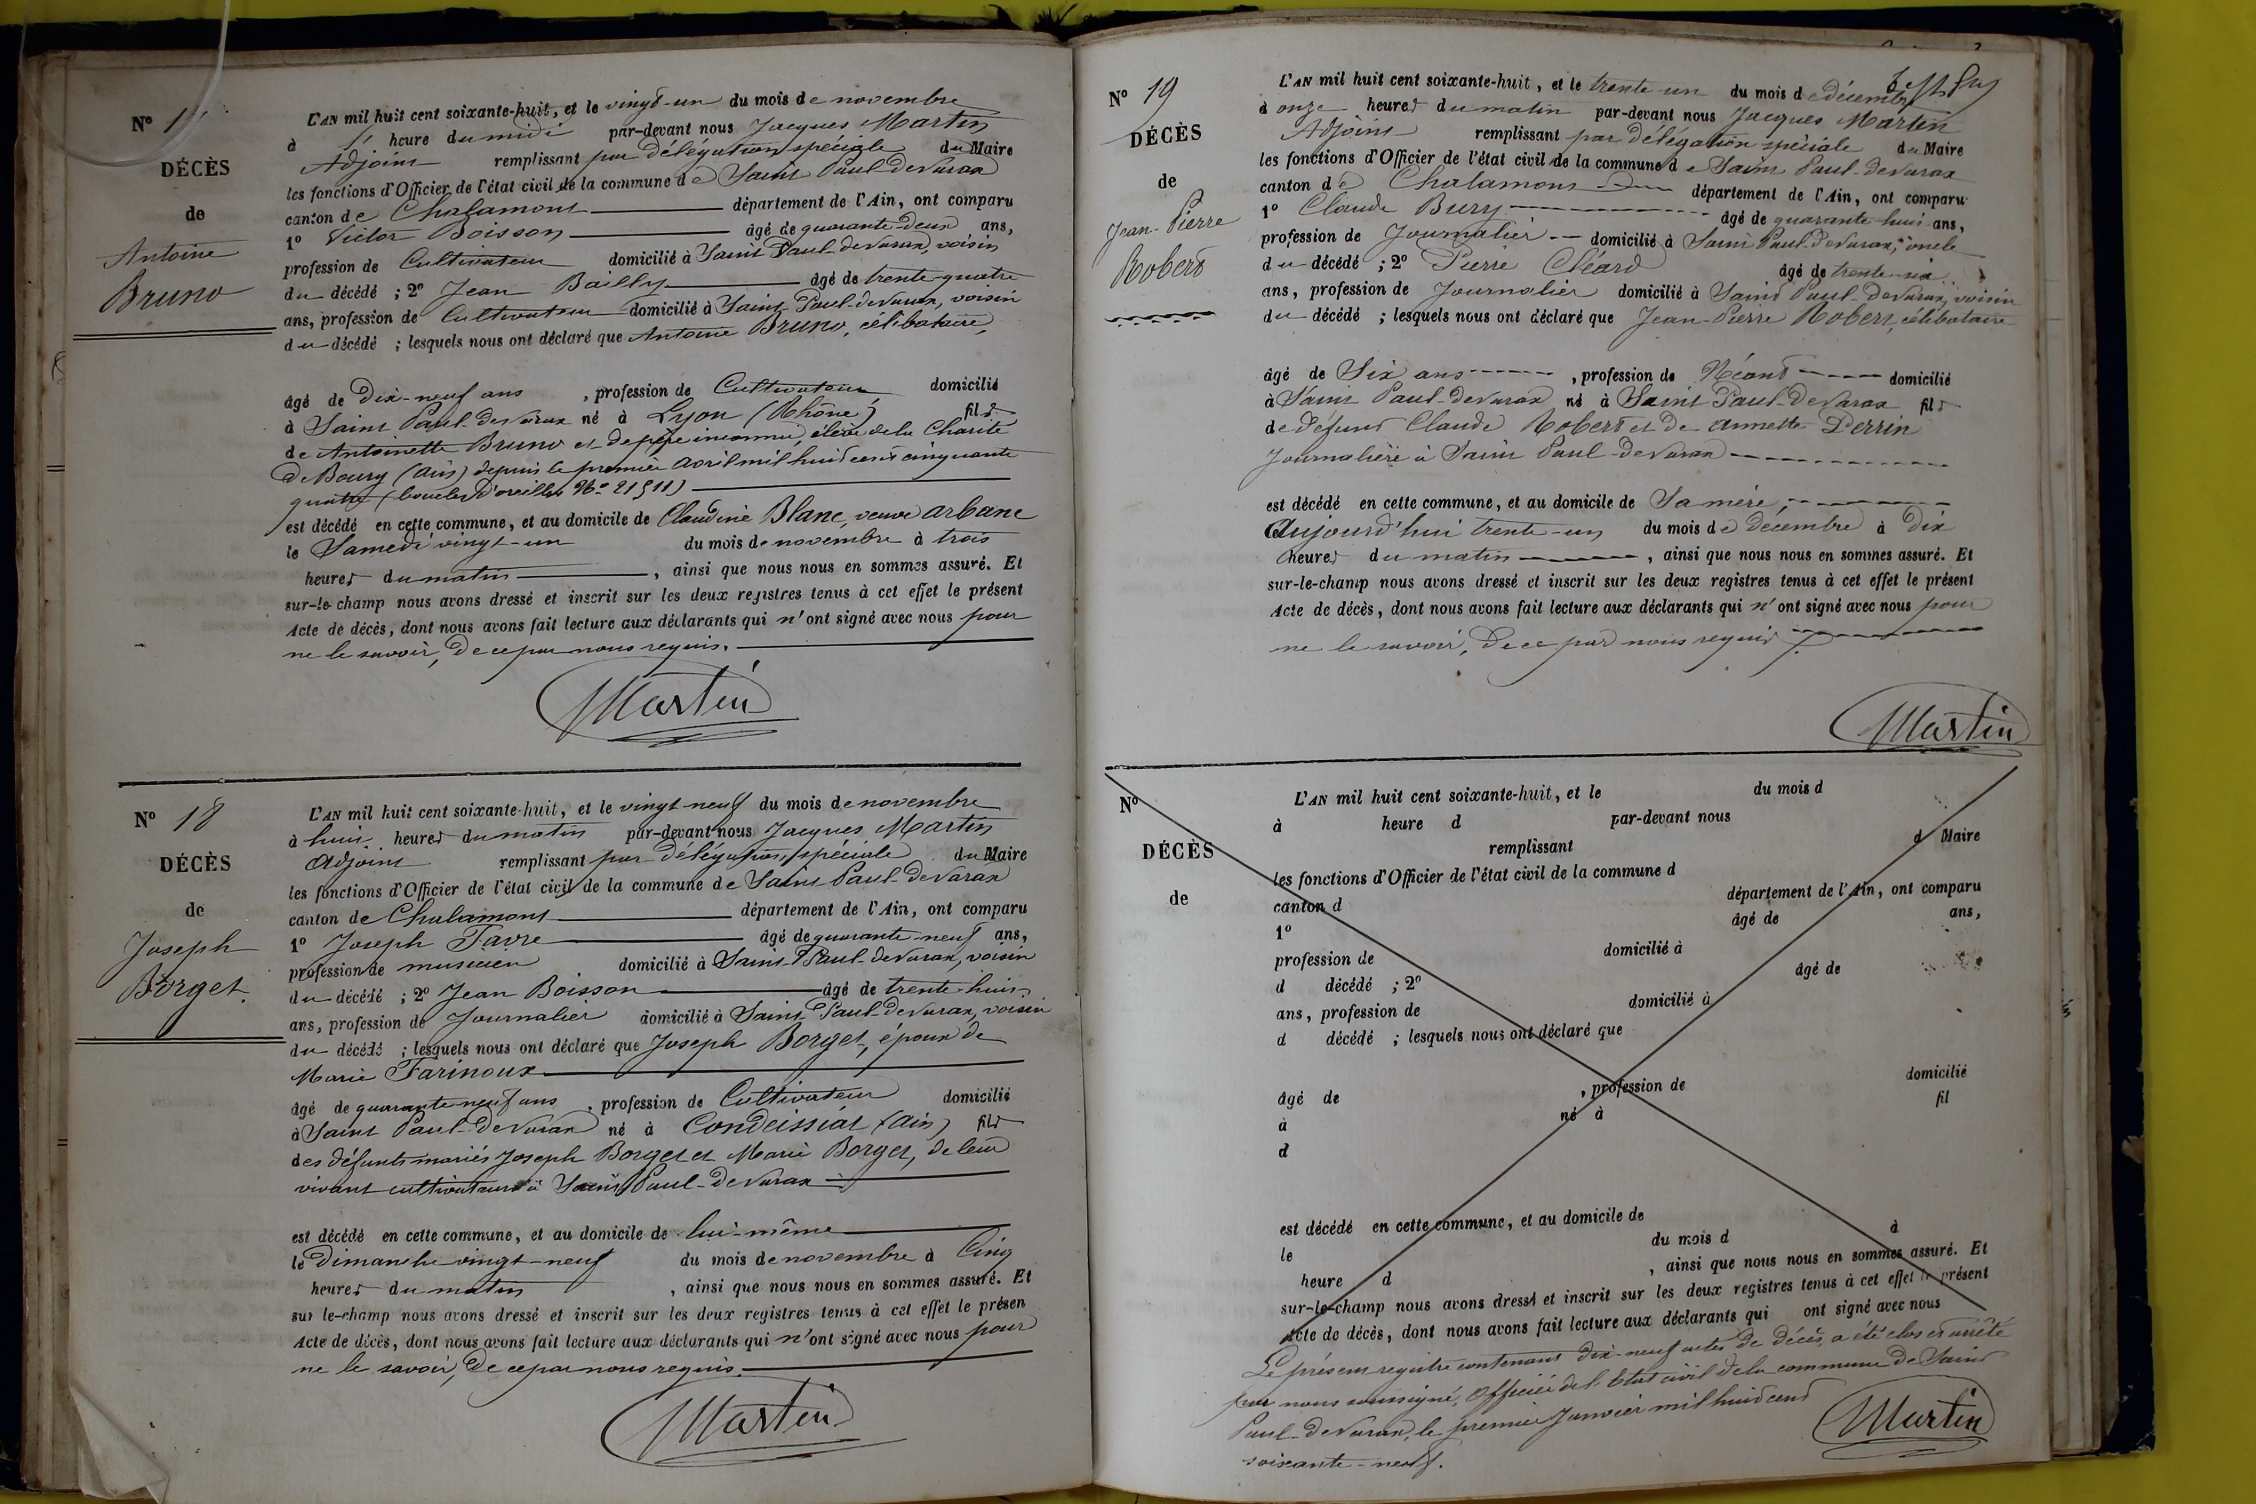 N°
DÉCÈS
de
Antoine
Bruno
L'AN mil huit cent soixante-huit, et le vingt-un du mois de novembre
à heure du midi par-devant nous Jacques Martin
Adjoint remplissant par délégation spéciale du Maire
les fonctions d'Officier de l'état civil de la commune de Saint Paul-de Varax
canton de Chalamont département de l'Ain, ont comparu
1° Victor Boisson âgé de quarante-deux ans,
profession de Cultivateur domicilié à Saint Paul-de Varax, voisin
du décédé ; 2° Jean Bailly âgé de trente-quatre
ans, profession de Cultivateur domicilié à Saint-Paul-de Varax, voisin
du décédé ; lesquels nous ont déclaré que Antoine Bruno, célibataire,
âgé de Dix-neuf ans , profession de Cultivateur domicilié
à Saint Paul-de Varax né à Lyon (Rhône) fils
de Antoinette Bruno et de père inconnu, élève de la Charité
de Bourg (Ain) depuis le premier avril mil huit cent cinquante
quatre (boucles d'oreilles N° 21511)
est décédé en cette commune, et au domicile de Claudine Blanc, veuve Arbane
le Samedi vingt-un du mois de novembre à trois
heures du matin , ainsi que nous nous en sommes assuré. Et
sur-le champ nous avons dressé et inscrit sur les deux registres tenus à cet effet le présent
Acte de décès, dont nous avons fait lecture aux déclarants qui n'ont signé avec nous pour
ne le savoir, de ce par nous requis.
Martin
N° 18
DÉCÈS
de
Joseph
Borget.
L'AN mil huit cent soixante-huit, et le vingt-neuf du mois de novembre
à huit heures du matin par-devant nous Jacques Martin
Adjoint remplissant par délégation spéciale du Maire
les fonctions d'Officier de l'état civil de la commune de Saint-Paul-de Varax
canton de Chalamont département de l'Ain, ont comparu
1° Joseph Favre âgé de quarante-neuf ans,
profession de musicien domicilié à Saint-Paul-de Varax, voisin
du décédé ; 2° Jean Boisson âgé de trente-huit
ans, profession de Journalier domicilié à Saint-Paul-de Varax, voisin
du décédé ; lesquels nous ont déclaré que Joseph Borget, époux de
Marie Farinoux
âgé de quarante neuf ans , profession de Cultivateur domicilié
à Saint Paul-de Varax né à Condeissiat (Ain) fils
des défunts mariés Joseph Borget et Marie Borget, de leur
vivant cultivateurs à Saint Paul-de Varax
est décédé en cette commune, et au domicile de lui-même
le Dimanche vingt-neuf du mois de novembre à Cinq
heures du matin , ainsi que nous nous en sommes assuré. Et
sur le-champ nous avons dressé et inscrit sur les deux registres tenus à cet effet le présen
Acte de décès, dont nous avons fait lecture aux déclarants qui n'ont signé avec nous pour
ne le savoir, de ce par nous requis.
Martin
N° 19
DÉCÈS
de
Jean-Pierre
Robert
L'AN mil huit cent soixante-huit, et le trente-un du mois de décembre
à onze heures du matin par-devant nous Jacques Martin
Adjoint remplissant par délégation spéciale du Maire
les fonctions d'Officier de l'état civil de la commune de Saint Paul-de Varax
canton de Chalamont département de l'Ain, ont comparu
1° Claude Bury âgé de quarante-huit ans,
profession de Journalier domicilié à Saint Paul-de Varax, oncle
du décédé ; 2° Pierre Cléard âgé de trente-six
ans, profession de Journalier domicilié à Saint Paul-de Varax, voisin
du décédé ; lesquels nous ont déclaré que Jean-Pierre Robert, célibataire
âgé de Six ans , profession de Néant domicilié
à Saint Paul-de Varax né à Saint Paul-de Varax fils
de défunt Claude Robert et de Annette Perrin
Journalière à Saint Paul-de Varax
est décédé en cette commune, et au domicile de Sa mère,
Aujourd'hui trente-un du mois de décembre à Dix
heures du matin , ainsi que nous nous en sommes assuré. Et
sur-le-champ nous avons dressé et inscrit sur les deux registres tenus à cet effet le présent
Acte de décès, dont nous avons fait lecture aux déclarants qui n'ont signé avec nous pour
ne le savoir, de ce par nous requis
Martin
N°
DÉCÈS
de
L'AN mil huit cent soixante-huit, et le du mois d
à heure d par-devant nous
remplissant d Maire
les fonctions d'Officier de l'état civil de la commune d
canton d département de l'Ain, ont comparu
1° âgé de ans,
profession de domicilié à
d décédé ; 2° âgé de
ans, profession de domicilié à
d décédé ; lesquels nous ont déclaré que
âgé de , profession de domicilié
à né à fil
d
est décédé en cette commune, et au domicile de
le du mois d à
heure d , ainsi que nous nous en sommes assuré. Et
sur-le-champ nous avons dressé et inscrit sur les deux registres tenus à cet effet le présent
Acte de décès, dont nous avons fait lecture aux déclarants qui ont signé avec nous
Le présent registre contenant dix-neuf actes de décès, a été clos et arrêté
par nous soussigné, Officier de l'état civil de la commune de Saint
Paul-de Varax, le premier Janvier mil huit cent
soixante-neuf.
Martin